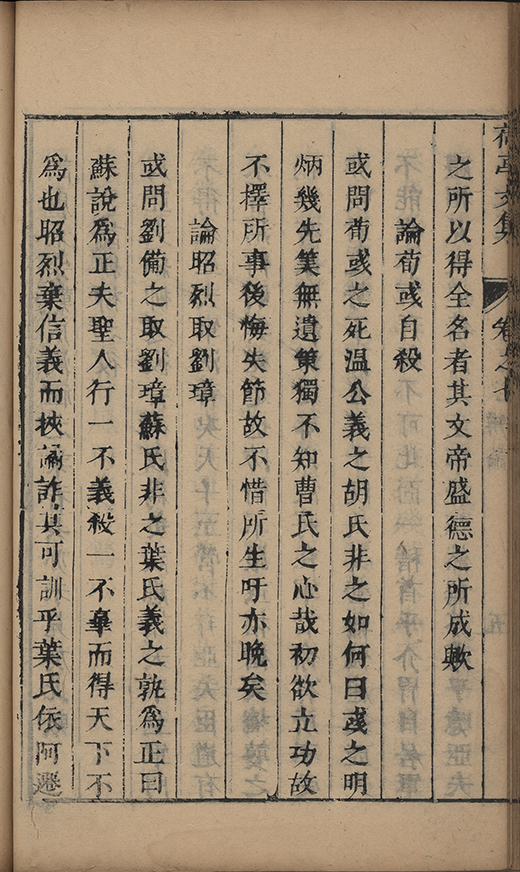 文集 卷之七
之所以得全名者其文帝盛德之所成歟
論荀彧自殺
或問荀彧之死温公義之胡氏非之如何曰彧之明
炳幾先筭無遺策獨不知曹氏之心哉初欲立功故
不擇所事後悔失節故不惜所生吁亦晚矣
論昭烈取劉璋
或問劉備之取劉璋蘇氏非之葉氏義之孰為正曰
蘇說為正夫聖人行一不義殺一不辜而得天下不
為也昭烈棄信義而挾譎詐其可訓乎葉氏依阿遷